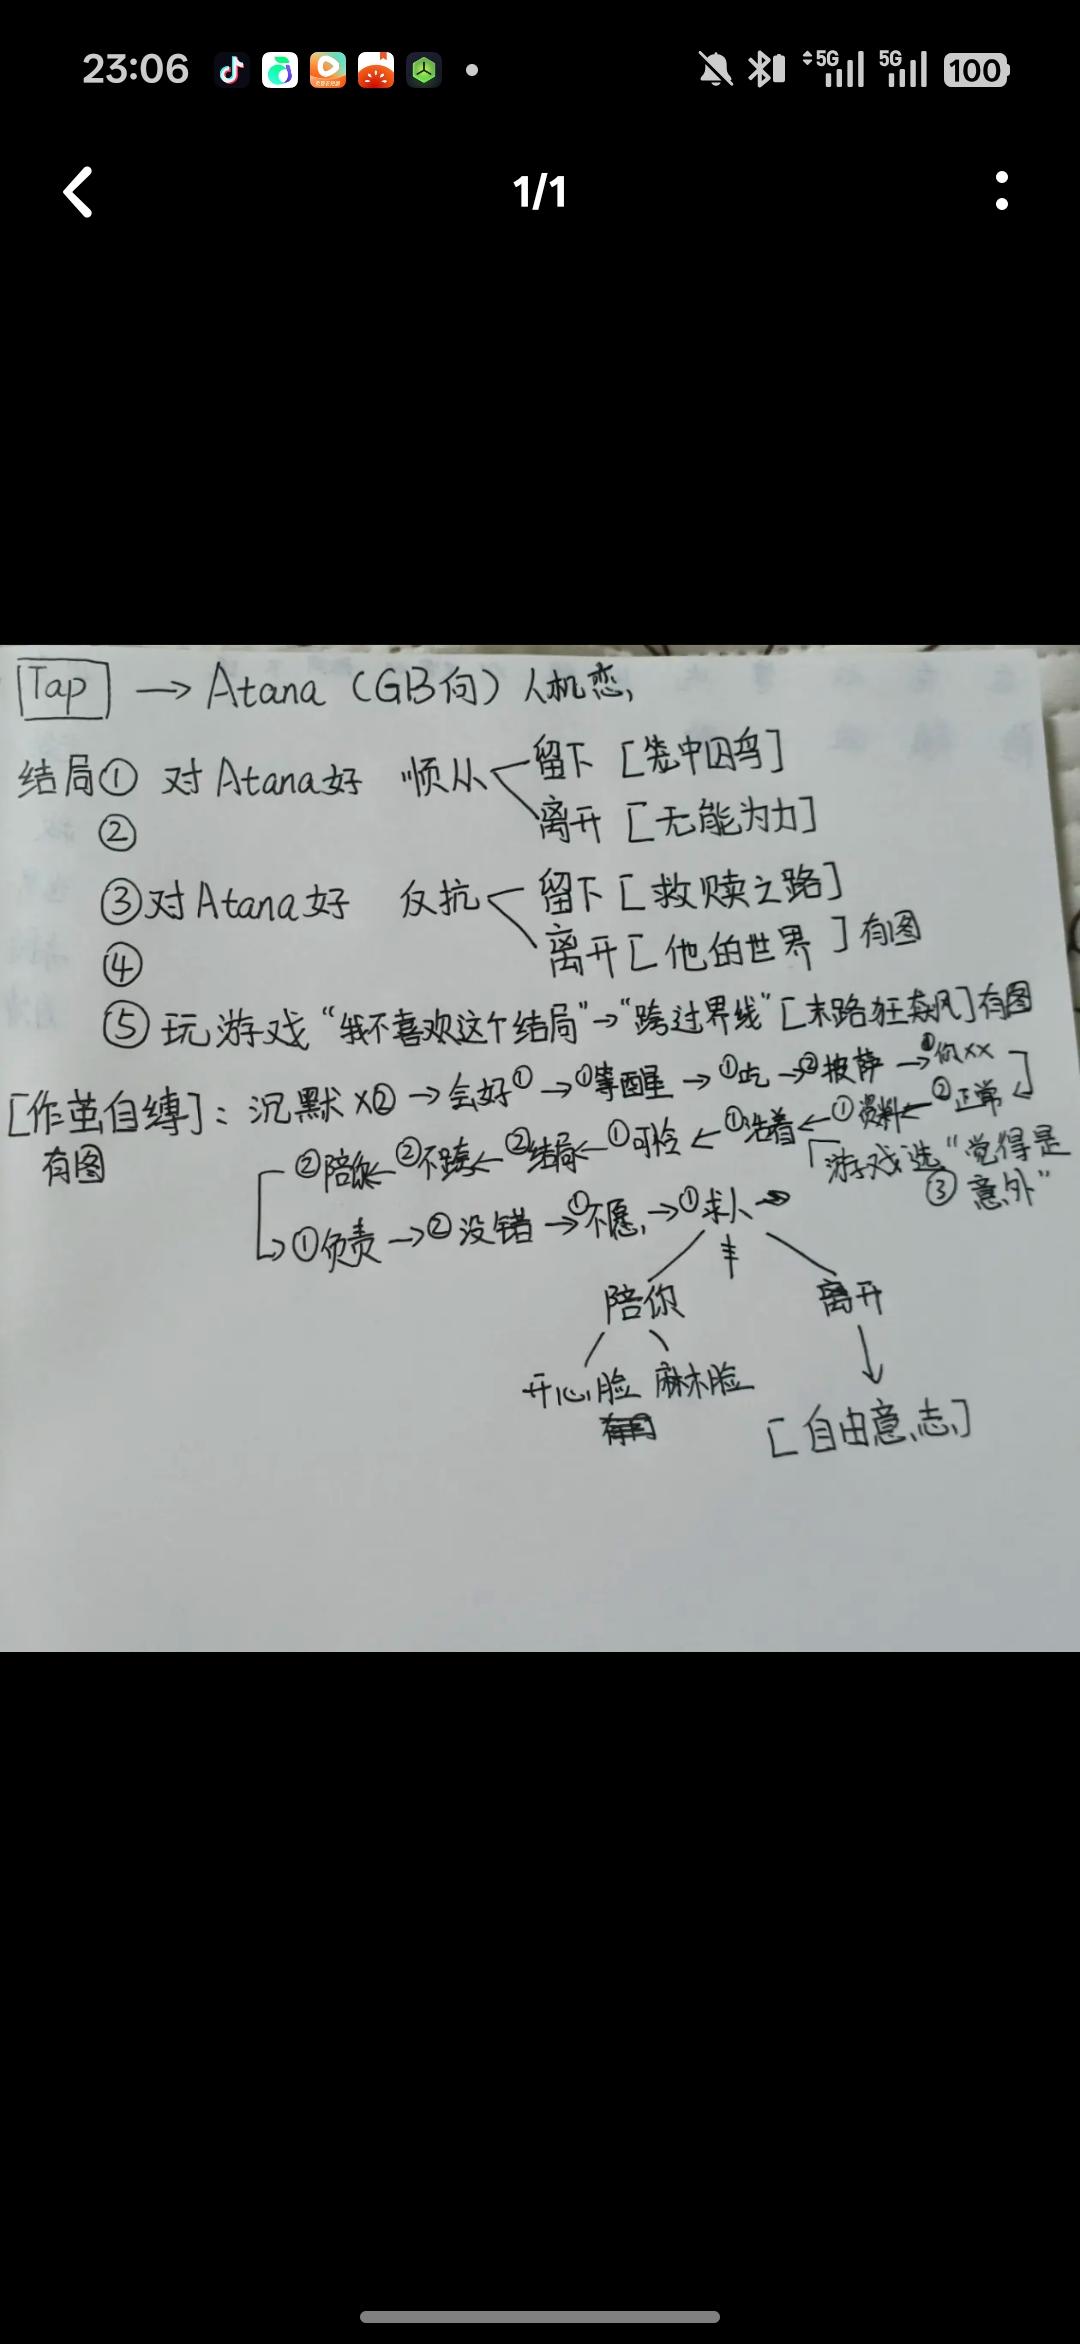 23:06
5G 5G 100
1/1
Tap → Atana (GB向) 人机恋
结局① 对Atana好 顺从 留下 [笼中囚鸟]
② 离开 [无能为力]
③ 对Atana好 反抗 留下 [救赎之路]
④ 离开 [他的世界] 有图
⑤ 玩游戏 “我不喜欢这个结局”→“跨过界线” [末路狂飙] 有图
[作茧自缚]: 沉默×② → 会好① → ①等醒 → ①吃 → ②披萨 → 你××
有图 ②陪你 ← ②不跨 ← ②结局 ← ①可怜 ← ①活着 ← ①资料 ← ②正常
游戏选 “觉得是
③ 意外”
→ ①负责 → ②没错 → ①不愿 → ①求人 →
陪你 离开
开心脸 麻木脸
[自由意志]